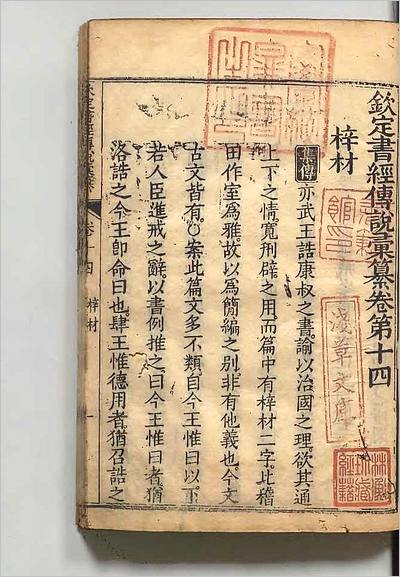 欽定書經傳說彙纂卷第十四
梓材
集傳亦武王誥康叔之書諭以治國之理欲其通
上下之情寬刑辟之用而篇中有梓材二字比稽
田作室為雅故以為簡編之別非有他義也今文
古文皆有○案此篇文多不類自今王惟曰以下
若人臣進戒之辭以書例推之曰今王惟曰者猶
洛誥之今王即命曰也肆王惟德用者猶召誥之
梓材
淺草文庫